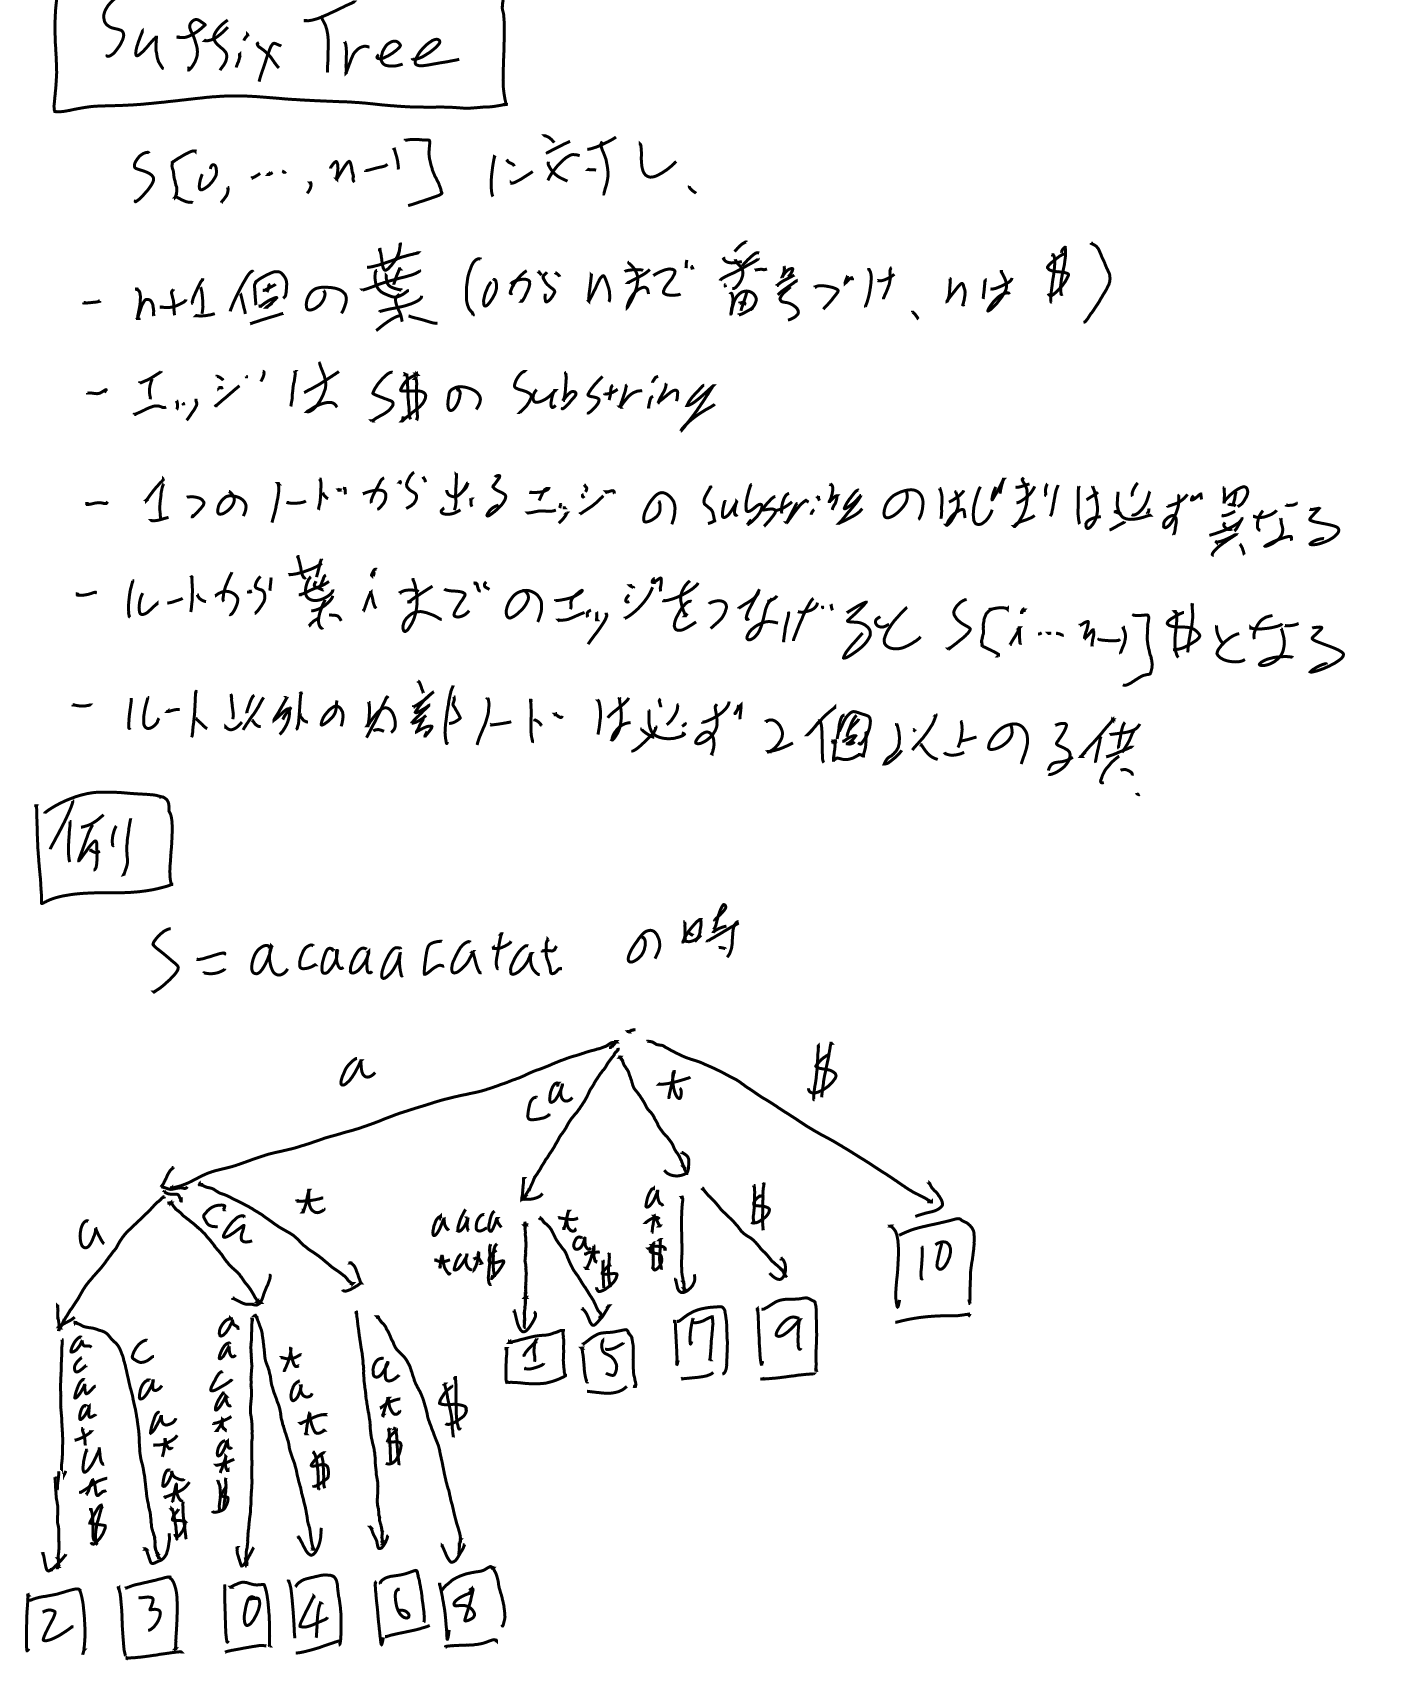 Suffix Tree
S[0, …, n-1] に対し、
- n+1個の葉 (0から nまで 番号づけ、nは $)
- エッジは S$ の Substring
- 1つのノードから出るエッジ の Substring のはじまりは必ず異なる
- ルートから葉 i までのエッジをつなげると S[i…n-1]$となる
- ルート以外の内部ノードは必ず2個以上の子供
例
S = acaaacatat の時
a ca t $
a ca t
aaca
tat$
tat$
at$
$
10
1 5 7 9
acaatat$
caatat$
aacatat$
tat$
at$
$
2 3 0 4 6 8